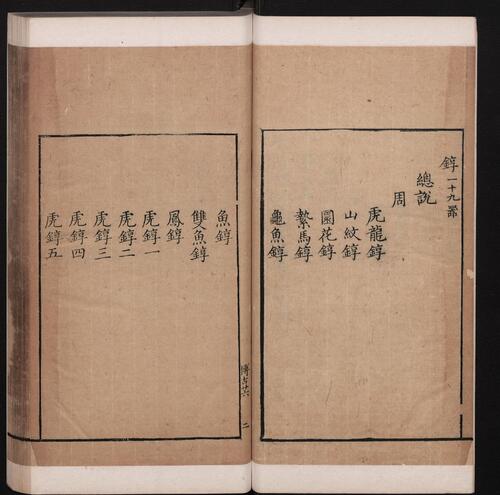 錞一十九器
總說
周
虎龍錞
山紋錞
圜花錞
縶馬錞
龜魚錞
魚錞
雙魚錞
鳳錞
虎錞一
虎錞二
虎錞三
虎錞四
虎錞五
博古廿六
二